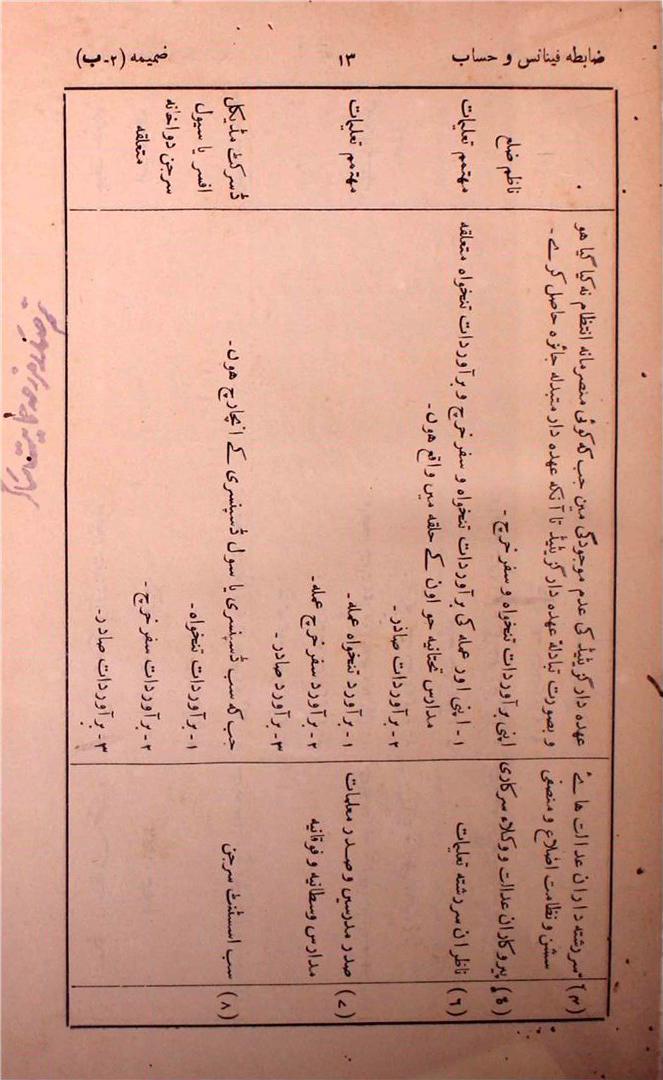 ضابطہ فینانس و حساب
۱۳
ضمیمہ (۲-ب)
(۴) سررشتہ داران عدالت ہائے
سشن و نظامت اضلاع و منصفی
عہدہ دار گزیٹیڈ کی عدم موجودگی میں جب کہ کوئی منصرمانہ انتظام نہ کیا گیا ہو
و بصورت تبادلۂ عہدہ دار گزیٹیڈ تا آنکہ عہدہ دار متبدلہ جائزہ حاصل کرے۔
(۵) پیروکاران عدالت و وکلاء سرکاری
اپنی برآوردات تنخواہ و سفر خرچ۔
ناظم ضلع
(۶) ناظران سررشتہ تعلیمات
۱- اپنی اور عملہ کی برآوردات تنخواہ و سفر خرچ و برآوردات تنخواہ متعلقہ
مدارس تحتانیہ جو اون کے حلقہ میں واقع ہوں۔
۲- برآوردات صادر۔
مہتمم تعلیمات
(۷) صدر مدرسین و صدر معلمات
مدارس وسطانیہ و فوقانیہ
۱- برآورد تنخواہ عملہ۔
۲- برآورد سفر خرچ عملہ۔
۳- برآورد صادر۔
مہتمم تعلیمات
(۸) سب اسسٹنٹ سرجن
جب کہ سب ڈسپنسری یا سول ڈسپنسری کے انچارج ہوں۔
۱- برآوردات تنخواہ۔
۲- برآوردات سفر خرچ۔
۳- برآوردات صادر۔
ڈسٹرکٹ مڈیکل
افسر یا سیول
سرجن دواخانہ
متعلقہ